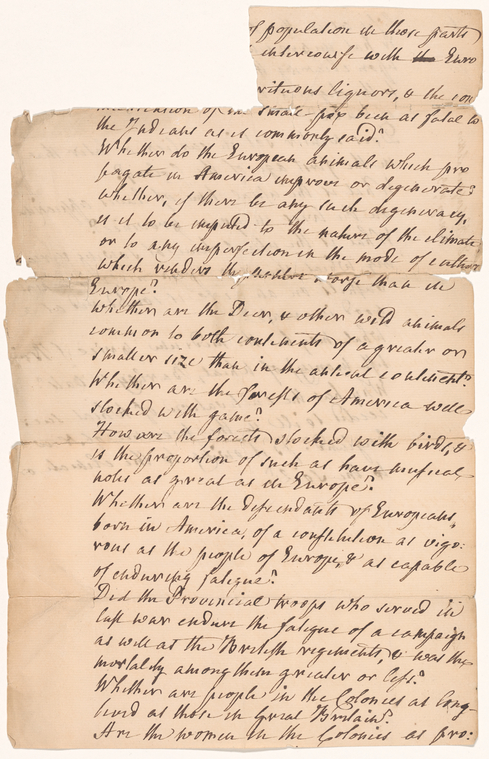 of population in those parts
intercourse with the Euro
rituous liquors, & the com
munication of the small pox been as fatal to
the Indians as is commonly said?
Whether do the European animals which pro
pagate in America improve or degenerate?
whether, if there be any such degeneracy,
is it to be imputed to the nature of the climate
or to any imperfection in the mode of culture
which renders the worse than in
Europe?
Whether are the Deer, & other wild animals
common to both continents of a greater or
smaller size than in the antient continent?
Whether are the forests of America well
stocked with game?
How are the forests stocked with birds, &
is the proportion of such as have musical
notes as great as in Europe?
Whether are the descendants of Europeans,
born in America, of a constitution as vigo:
rous as the people of Europe, & as capable
of enduring fatigue?
Did the Provincial troops who served in
last war endure the fatigue of a campaign
as well as the British regiments, & was the
mortality among them greater or less?
Whether are people in the Colonies as long
lived as those in Great Britain?
Are the women in the Colonies as pro: